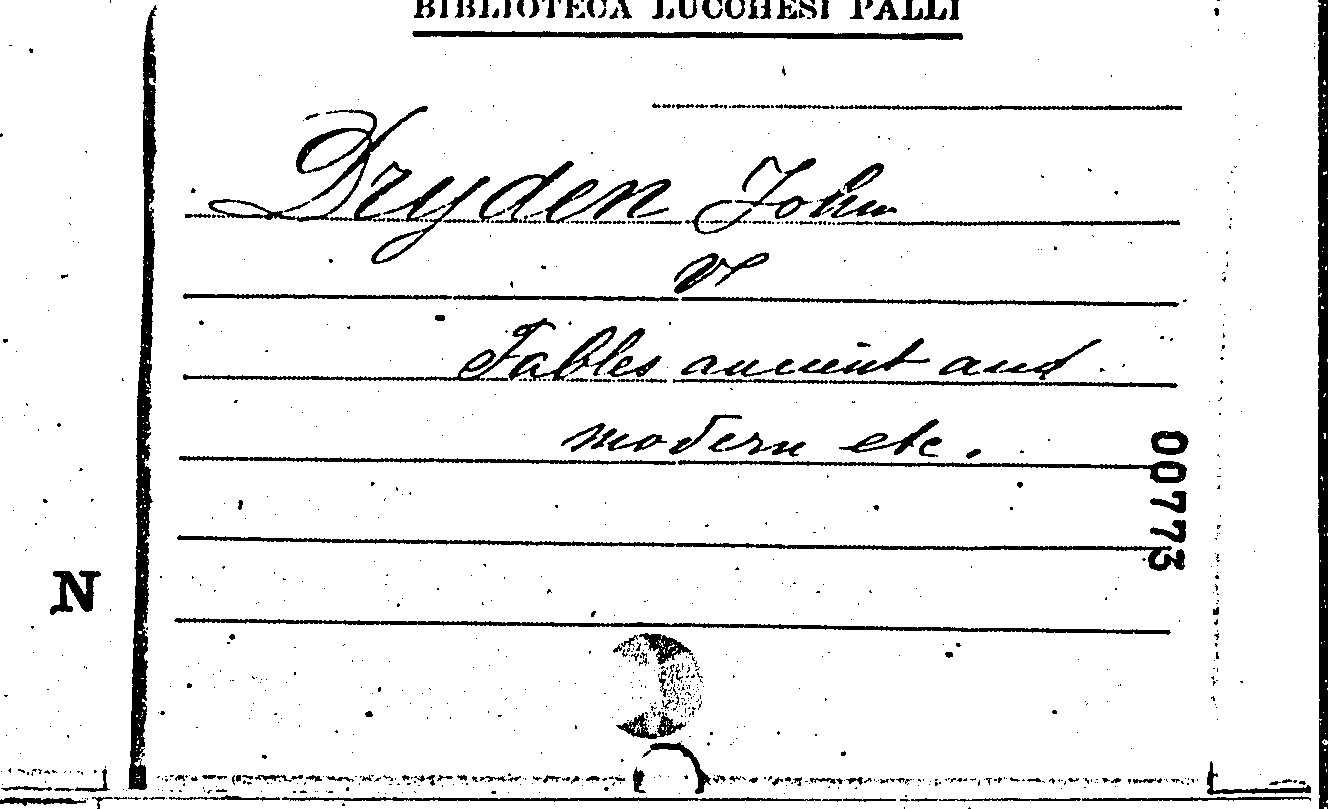 BIBLIOTECA LUCCHESI PALLI
Dryden John
V
Fables ancient and
modern etc.
00773
N